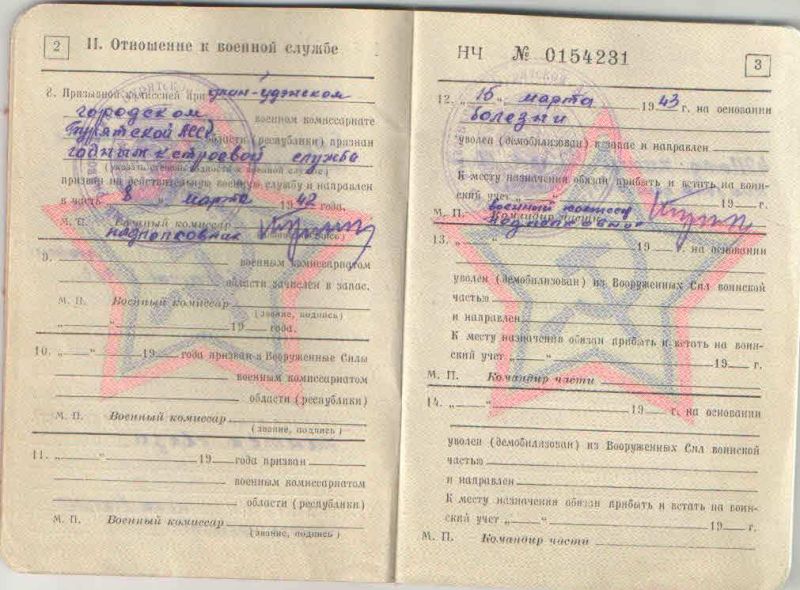 2 II. Отношение к военной службе
8. Призывной комиссией при Улан-Удэнском
городском военном комиссариате
Бурятской АССР области (республики) признан
годным к строевой служба
(указать степень годности к военной службе)
призван на действительную военную службу и направлен
в часть „ 8 “ марта 19 42 года.
М. П. Военный комиссар
подполковник (звание, подпись)
9. военным комиссариатом
области зачислен в запас.
М. П. Военный комиссар
(звание, подпись)
„ “ 19 года.
10. „ “ 19 года призван в Вооруженные Силы
военным комиссариатом
области (республики)
М. П. Военный комиссар
(звание, подпись)
11. „ “ 19 года призван
военным комиссариатом
области (республики)
М. П. Военный комиссар
(звание, подпись)
НЧ № 0154231 3
12. „ 15 “ марта 19 43 г. на основании
болезни
уволен (демобилизован) в запас и направлен
К месту назначения обязан прибыть и встать на воин-
ский учет „ “ 19 г.
военный комиссар
М. П. Командир части
13. „ “ 19 г. на основании
уволен (демобилизован) из Вооруженных Сил воинской
частью
и направлен
К месту назначения обязан прибыть и встать на воин-
ский учет „ “ 19 г.
М. П. Командир части
14. „ “ 19 г. на основании
уволен (демобилизован) из Вооруженных Сил воинской
частью
и направлен
К месту назначения обязан прибыть и встать на воин-
ский учет „ “ 19 г.
М. П. Командир части